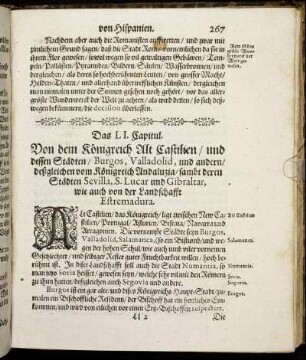 von Hispanien. 267
Nachdem aber auch die Romanisten auftretten / und zwar mit
zimlichem Grund sagen / daß die Stadt Rom vornemlichen da sie in
ihrem Flor gewesen / sowol wegen so vil gewaltigen Gebäwen / Tem-
peln / Pallästen / Pyramidn / Bildern / Säulen / Wasserbronnen / und
dergleichen / als deren so hochberühmten Leuten / von grosser Macht /
Helden-Thaten / und allerhand übertrefflichen Künsten / dergleichen
kein mannlich unter der Sonnen gesehen noch gehört / vor das aller-
gröste Wunderwerck der Welt zu achten /
wegen bekümmern / die decision überlassen.
Das LI. Capitul.
Von dem Königreich Alt Castilien / und
dessen Städten / Burgos, Valladolid, und andern /
deßgleichen vom Königreich Andaluzia / sambt deren
Städten Sevilla, S. Lucar und Gibraltar,
wie auch von der Landschafft
Estremadura.
Alt Castilien / das Königreich / ligt zwischen New Ca-
stilien / Portugal / Asturien / Biscaia / Navarra und
Arragonien. Die vornemste Städte seyn Burgos,
Valladolid, Salamanca, so ein Bisthumb / und we-
gen der hohen Schul / wie auch underer vornemen
Geschlechter / und
rühmt ist. In diser Landschafft soll auch die Stadt Numantia, so
man jetzo Soria heisset / gewesen seyn /
zu thun hatten / deßgleichen auch Segovia und andere.
Burgos ist ein gar alte / und dises Königreichs Haupt-Stadt / zu-
mahl ein Bischoffliche Residenz / der Bischoff hat ein herrliches Ein-
kommen / und wird von etlichen vor einen Ertz-Bischoffen respectirt.
Alt Castilien
Salamanca.
Numantia.
Soria.
Segovia.
Burgos.
Ll 2 Die